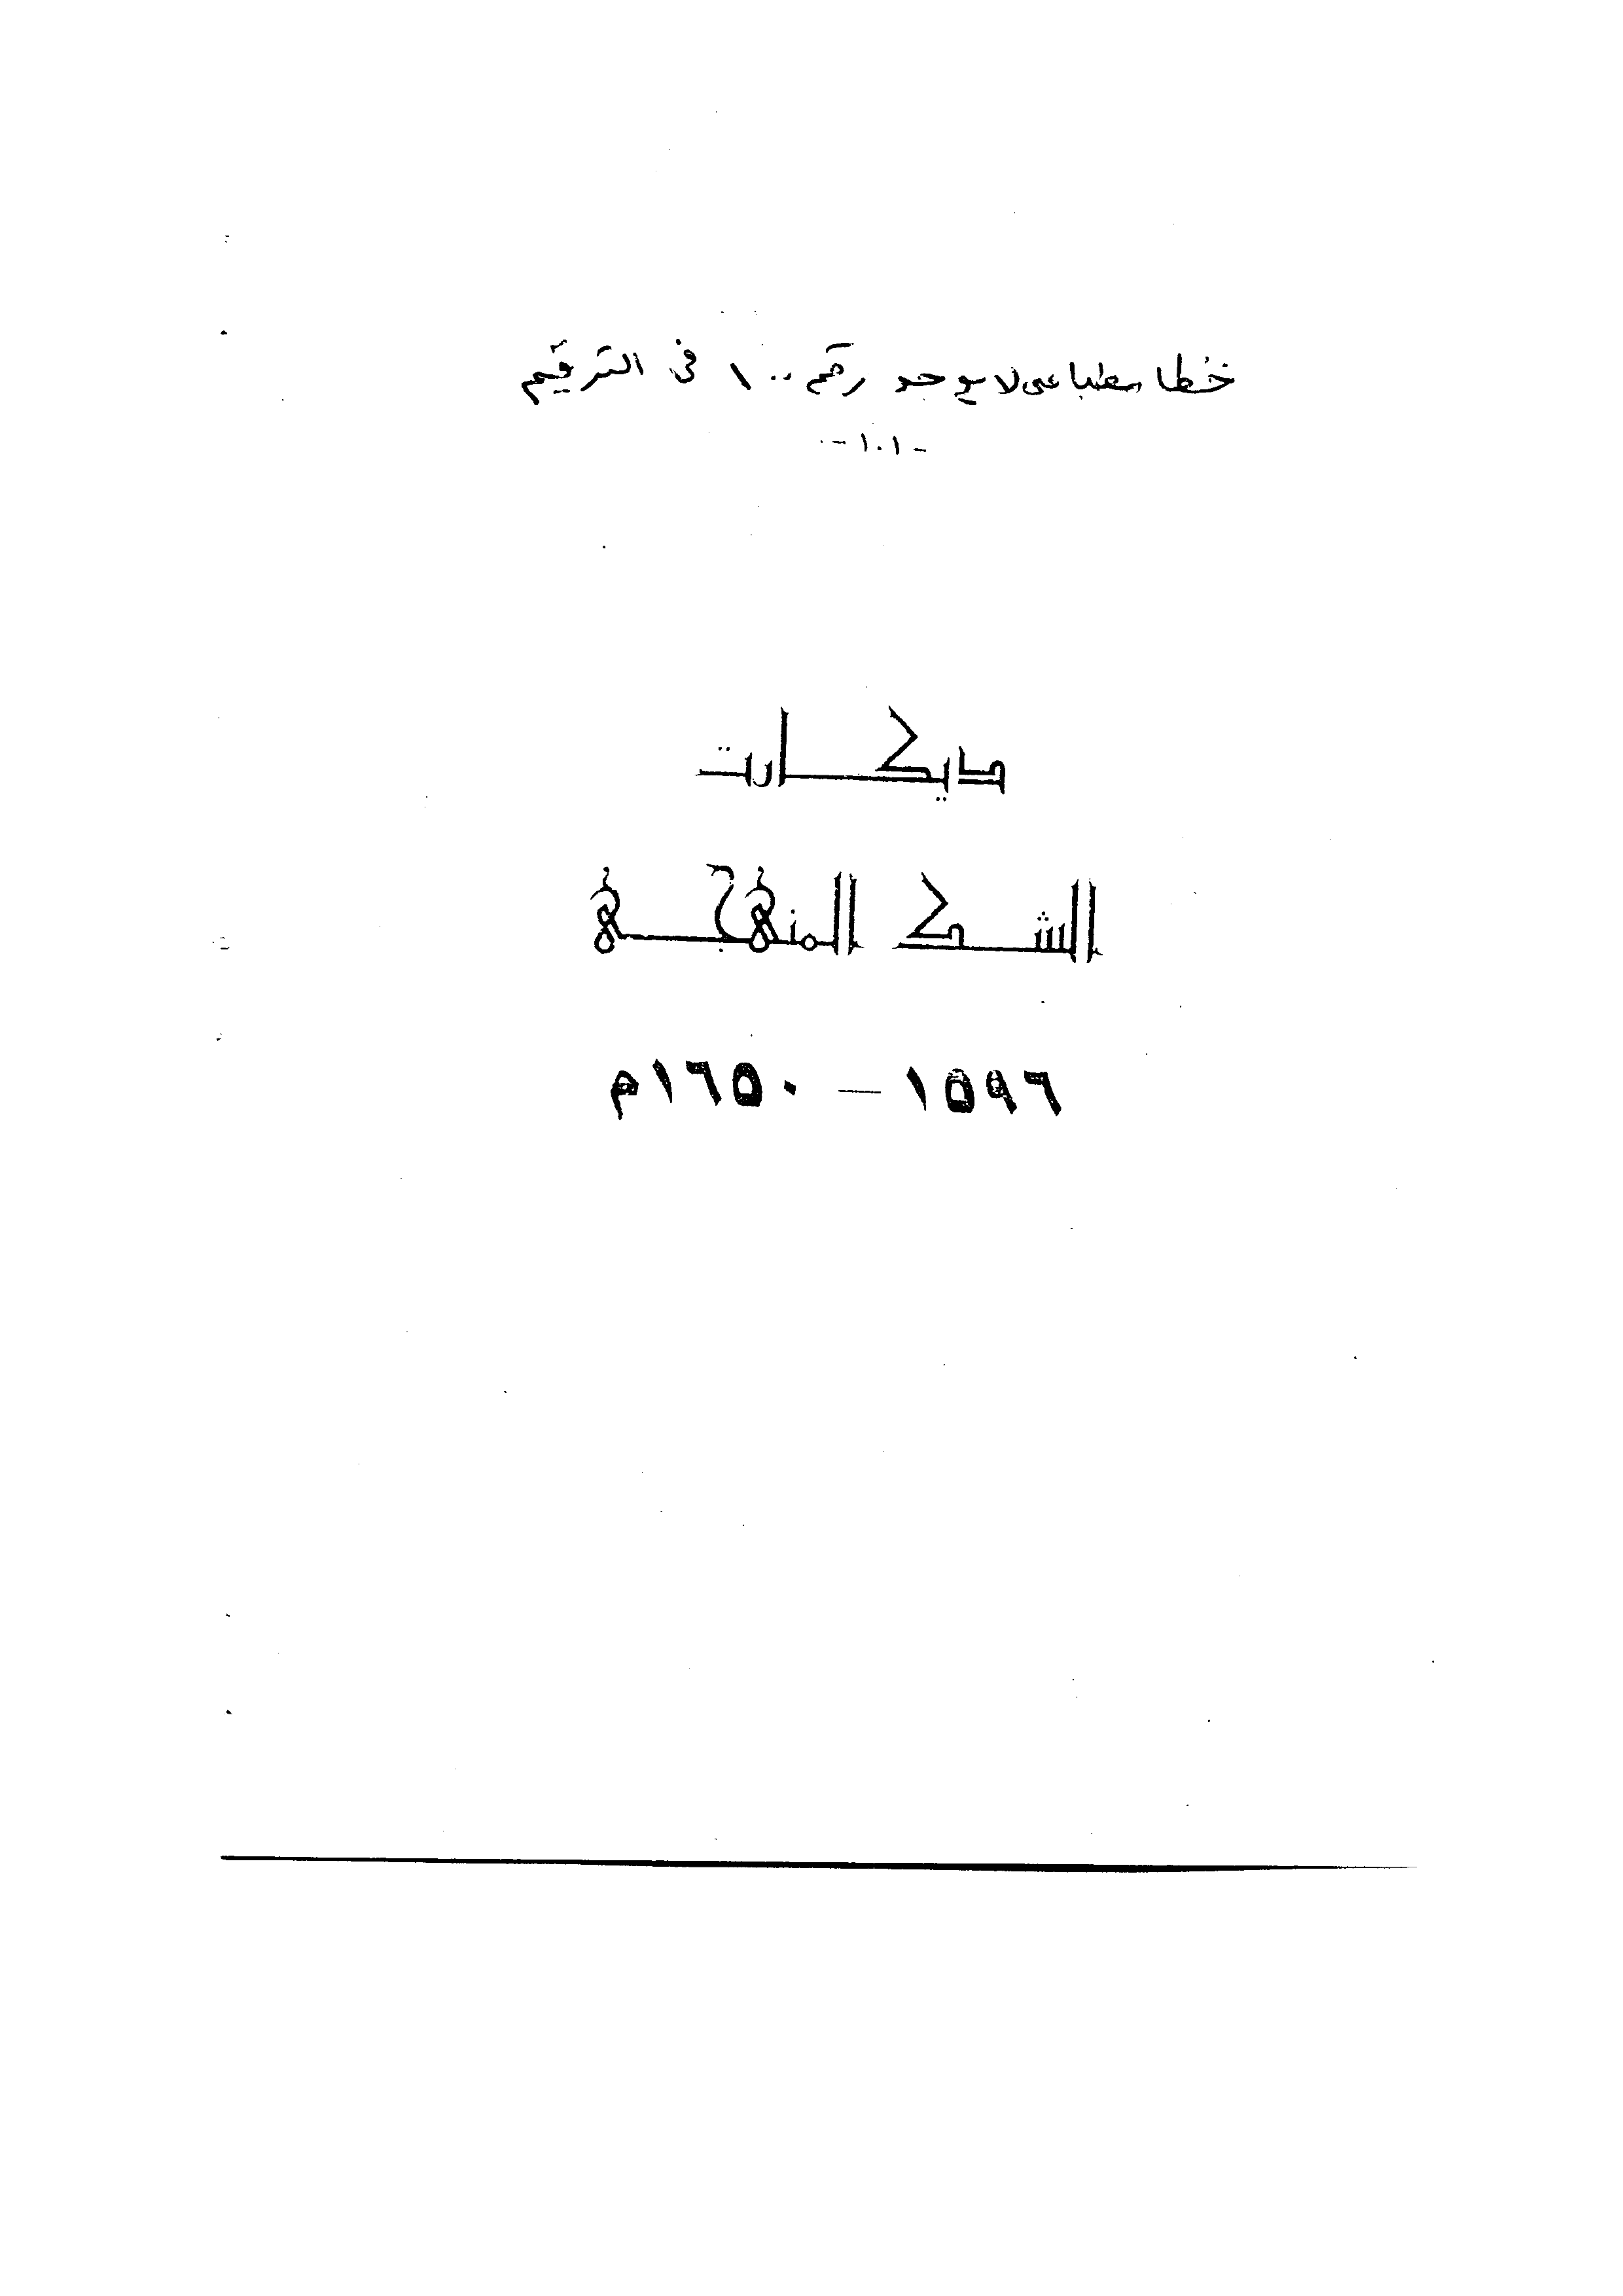 خطا مطباعى لا يوجد رقم ١٠٠ فى الترقيم
-١٠١-
ديكارت
الشك المنهجى
١٥٩٦ – ١٦٥٠م